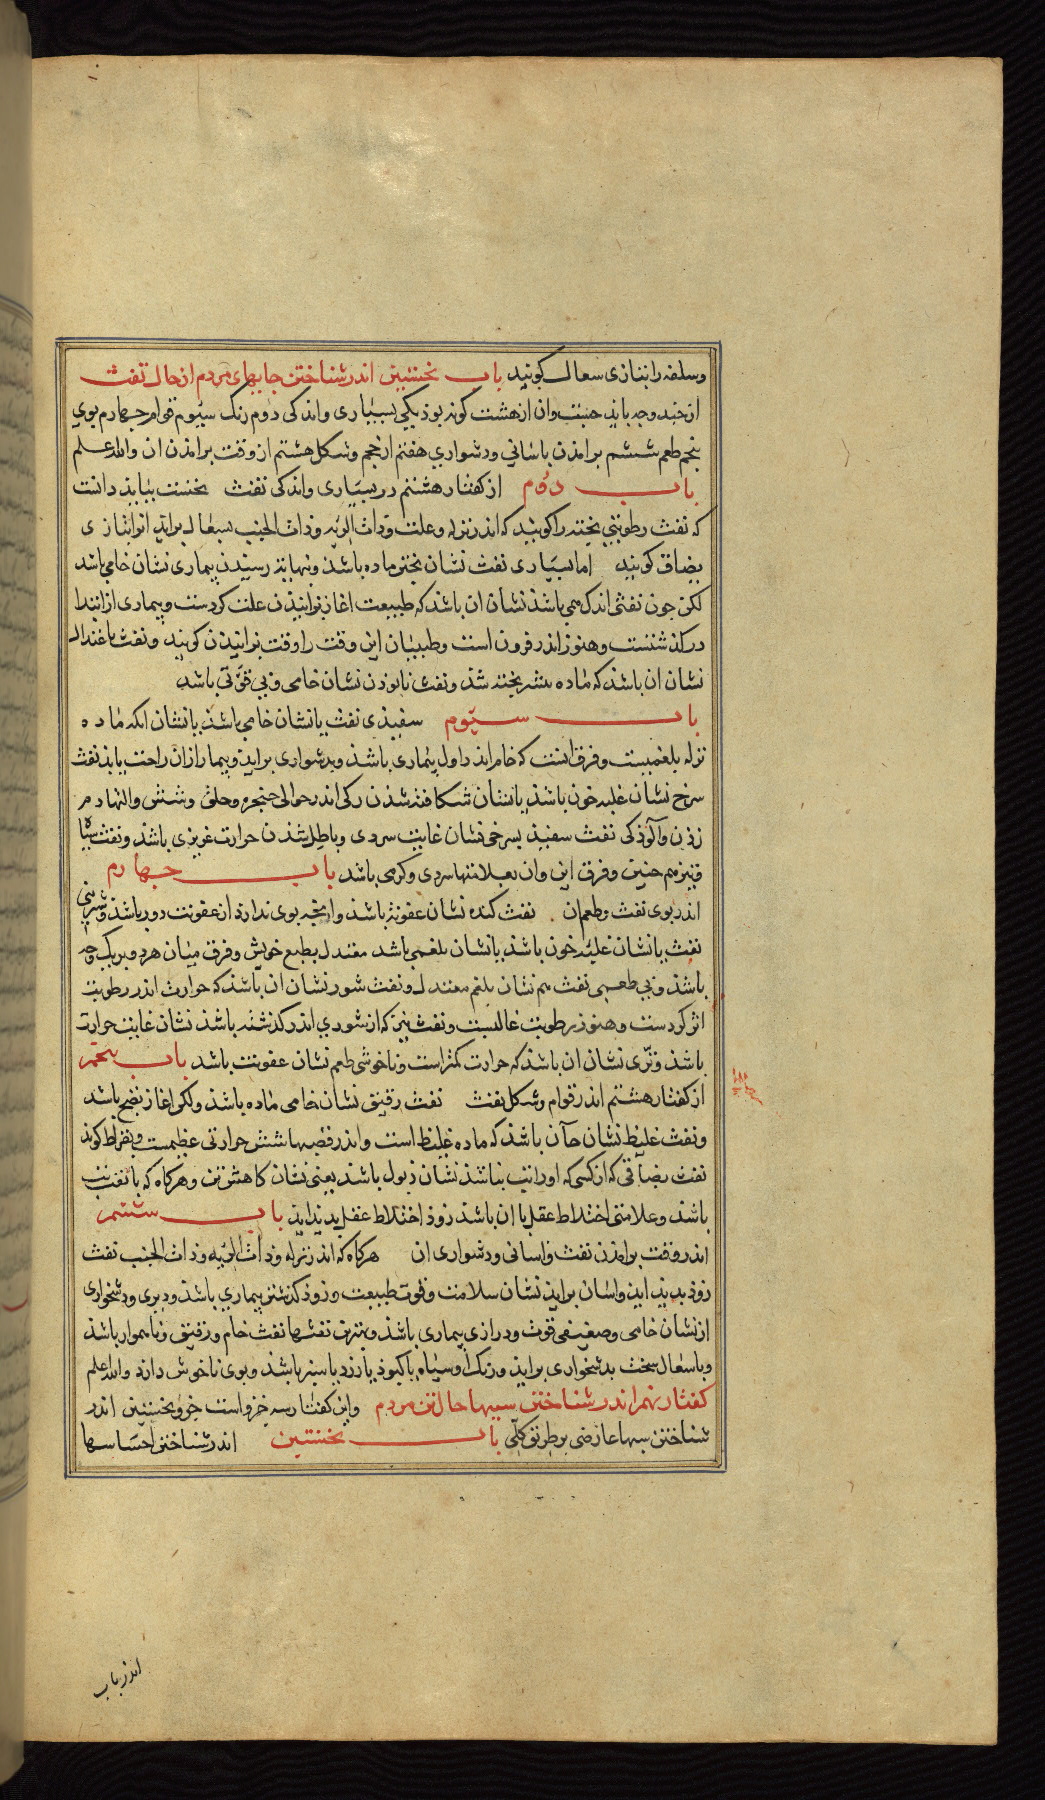 وسلفه را بتازی سعال کویند باب نخستین اندر شناختن حالهای مردم از حال نفث
از چند وجه باید جست وان از هشت کونه بود یکی بسیاری واندکی دوم رنک سیوم قوام چهارم بوی
پنجم طعم ششم برامدن باسانی ودشواری هفتم از حجم وشکل هشتم از وقت برامدن ان والله علم
باب دوم از کفتار هشتم در بسیاری واندکی نفث نخست بباید دانست
که نفث رطوبتی پخته را کویند که اندر نزله وعلت وذات الریه وذات الجنب بسعال براید انرا بتازی
بضاق کویند اما بسیاری نفث نشان پختن ماده باشد وبنهایت رسیدن بیماری نشان خامی باشد
لکن چون نفثی اندک می باشد نشان ان باشد که طبیعت اغاز پزانیدن علت کردست وبیماری از ابتدا
در کذشتست وهنوز اندر فزون است وطبیبان این وقت را وقت پزانیدن کویند ونفث باعتدال
نشان ان باشد که ماده بیشتر پخته شد ونفث نابودن نشان خامی وبی قوتی باشد
باب سیوم سفیدی نفث یا نشان خامی باشد یا نشان انکه ماده
نزله بلغمیست وفرق انست که خام اندر اول بیماری باشد وبدشواری براید وبیمار ازان راحت یابد نفث
سرخ نشان غلبه خون باشد یا نشان شکافته شدن رکی اندر حوالی حنجره وحلق وشش والتها دم
زدن والوذکی نفث سفید بسرخی نشان غایت سردی وباطل شدن حرارت غریزی باشد ونفث سیاه
وتیزهم چنین وفرق این وان بعلامتها سردی وکرمی باشد باب چهارم
اندر بوی نفث وطعم ان نفث کنده نشان عفونة باشد وانچه بوی ندارد از عفونت دور باشد وشیرینی
نفث یا نشان غلبه خون باشد یا نشان بلغمی باشد معتدل بطبع خویش وفرق میان هردو بریک وجه
باشد وبی طعمی نفث هم نشان بلغم معتدل ونفث شور نشان ان باشد که حرارت اندر رطوبت
اثر کردست وهنوز رطوبت غالبست ونفث تیز که از شوری اندر کذشته باشد نشان غایت حرارت
باشد وترشی نشان ان باشد که حرارت کمتر است وناخوشی طعم نشان عفونت باشد باب پنجم
از کفتار هشتم اندر قوام وشکل نفث نفث رقیق نشان خامی ماده باشد ولکن اغاز نضج باشد
ونفث غلیظ نشان ان باشد که ماده غلیظ است واندر قصبها شش حرارتی عظیمست وبقراط کوید
نفث بصاقی که از کسی که اورا تب نباشد نشان ذبول باشد یعنی نشان کاهش تن وهرکاه که با نفث تب
باشد وعلامتی اختلاط عقل با ان باشد زود اختلاط عقل پدید اید باب ششم
اندر وقت برامدن نفث واسانی ودشواری ان هرکاه که اندر نزله وذات الریه وذات الجنب نفث
زود پدید اید واسان براید نشان سلامت وقوت طبیعت وزود کذشتن بیماری باشد ودیری ودشخواری
ازنشان خامی وضعیفی قوت ودرازی بیماری باشد وبترین نفثها نفث خام ورقیق وناهموار باشد
وباسعال سخت بدشخواری براید ورنک او سیاه یا کبود یا زرد یا سبز باشد وبوی ناخوش دارد والله علم
کفتار نهم اندر شناختن سببها حال تن مردم واین کفتار سه جزو است جزو نخستین اندر
شناختن سببها عارضی بر طریق کلی باب نخستین اندر شناختن اجناس سببها
اندر باب